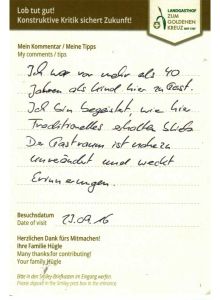 Lob tut gut!
Konstruktive Kritik sichert Zukunft!
LANDGASTHOF
ZUM
GOLDENEN
KREUZ
Mein Kommentar / Meine Tipps
My comments / tips
Ich war vor mehr als 40
Jahren als Kind hier zu Gast.
Ich bin begeistert, wie hier
Traditionelles erhalten blieb
Der Gastraum ist nahezu
unverändert und weckt
Erinnerungen.
Besuchsdatum
Date of visit
23.09.16
Herzlichen Dank fürs Mitmachen!
Ihre Familie Hügle
Many thanks for contributing!
Your family Hügle
Bitte in den Smiley-Briefkasten im Eingang werfen.
Please deposit in the Smiley post box in the entrance.